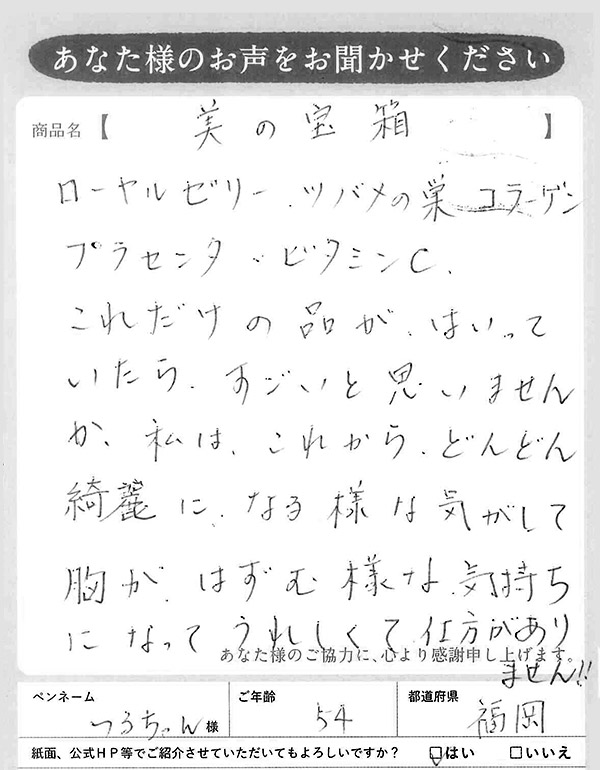 あなた様のお声をお聞かせください
商品名【 美の宝箱 】
ローヤルゼリー、ツバメの巣 コラーゲン
プラセンタ、ビタミンC、
これだけの品が、はいって
いたら、すごいと思いません
か、私は、これから、どんどん
綺麗に、なる様な気がして
胸が、はずむ様な、気持ち
になって うれしくて、仕方があり
ません!!
あなた様のご協力に、心より感謝申し上げます。
ペンネーム ご年齢 都道府県
つるちゃん 様 54 福岡
紙面、公式HP等でご紹介させていただいてもよろしいですか？ ☑はい □いいえ